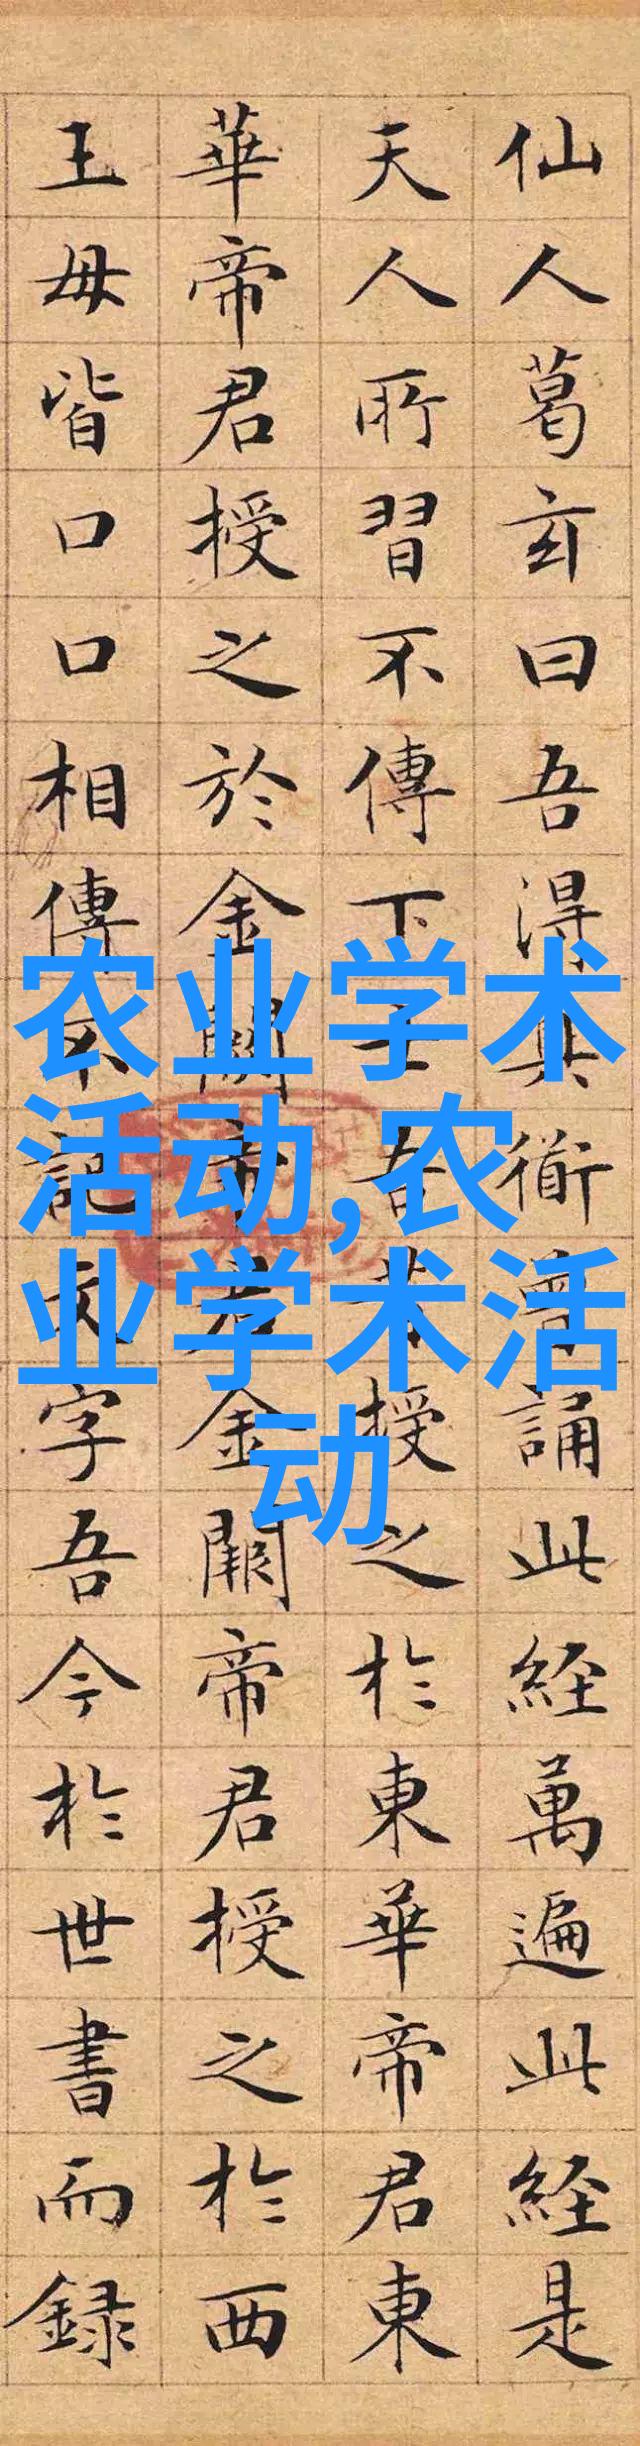 仙人葛玄曰吾得真衜曾誦此経萬遍此経是
天人所習不傳下士吾昔授之於東華帝君東
華帝君授之於金闕帝君金闕帝君授之於西
王母皆口口相傳不記文字吾今於世書而録
农业学术
活动,农
业学术活
动